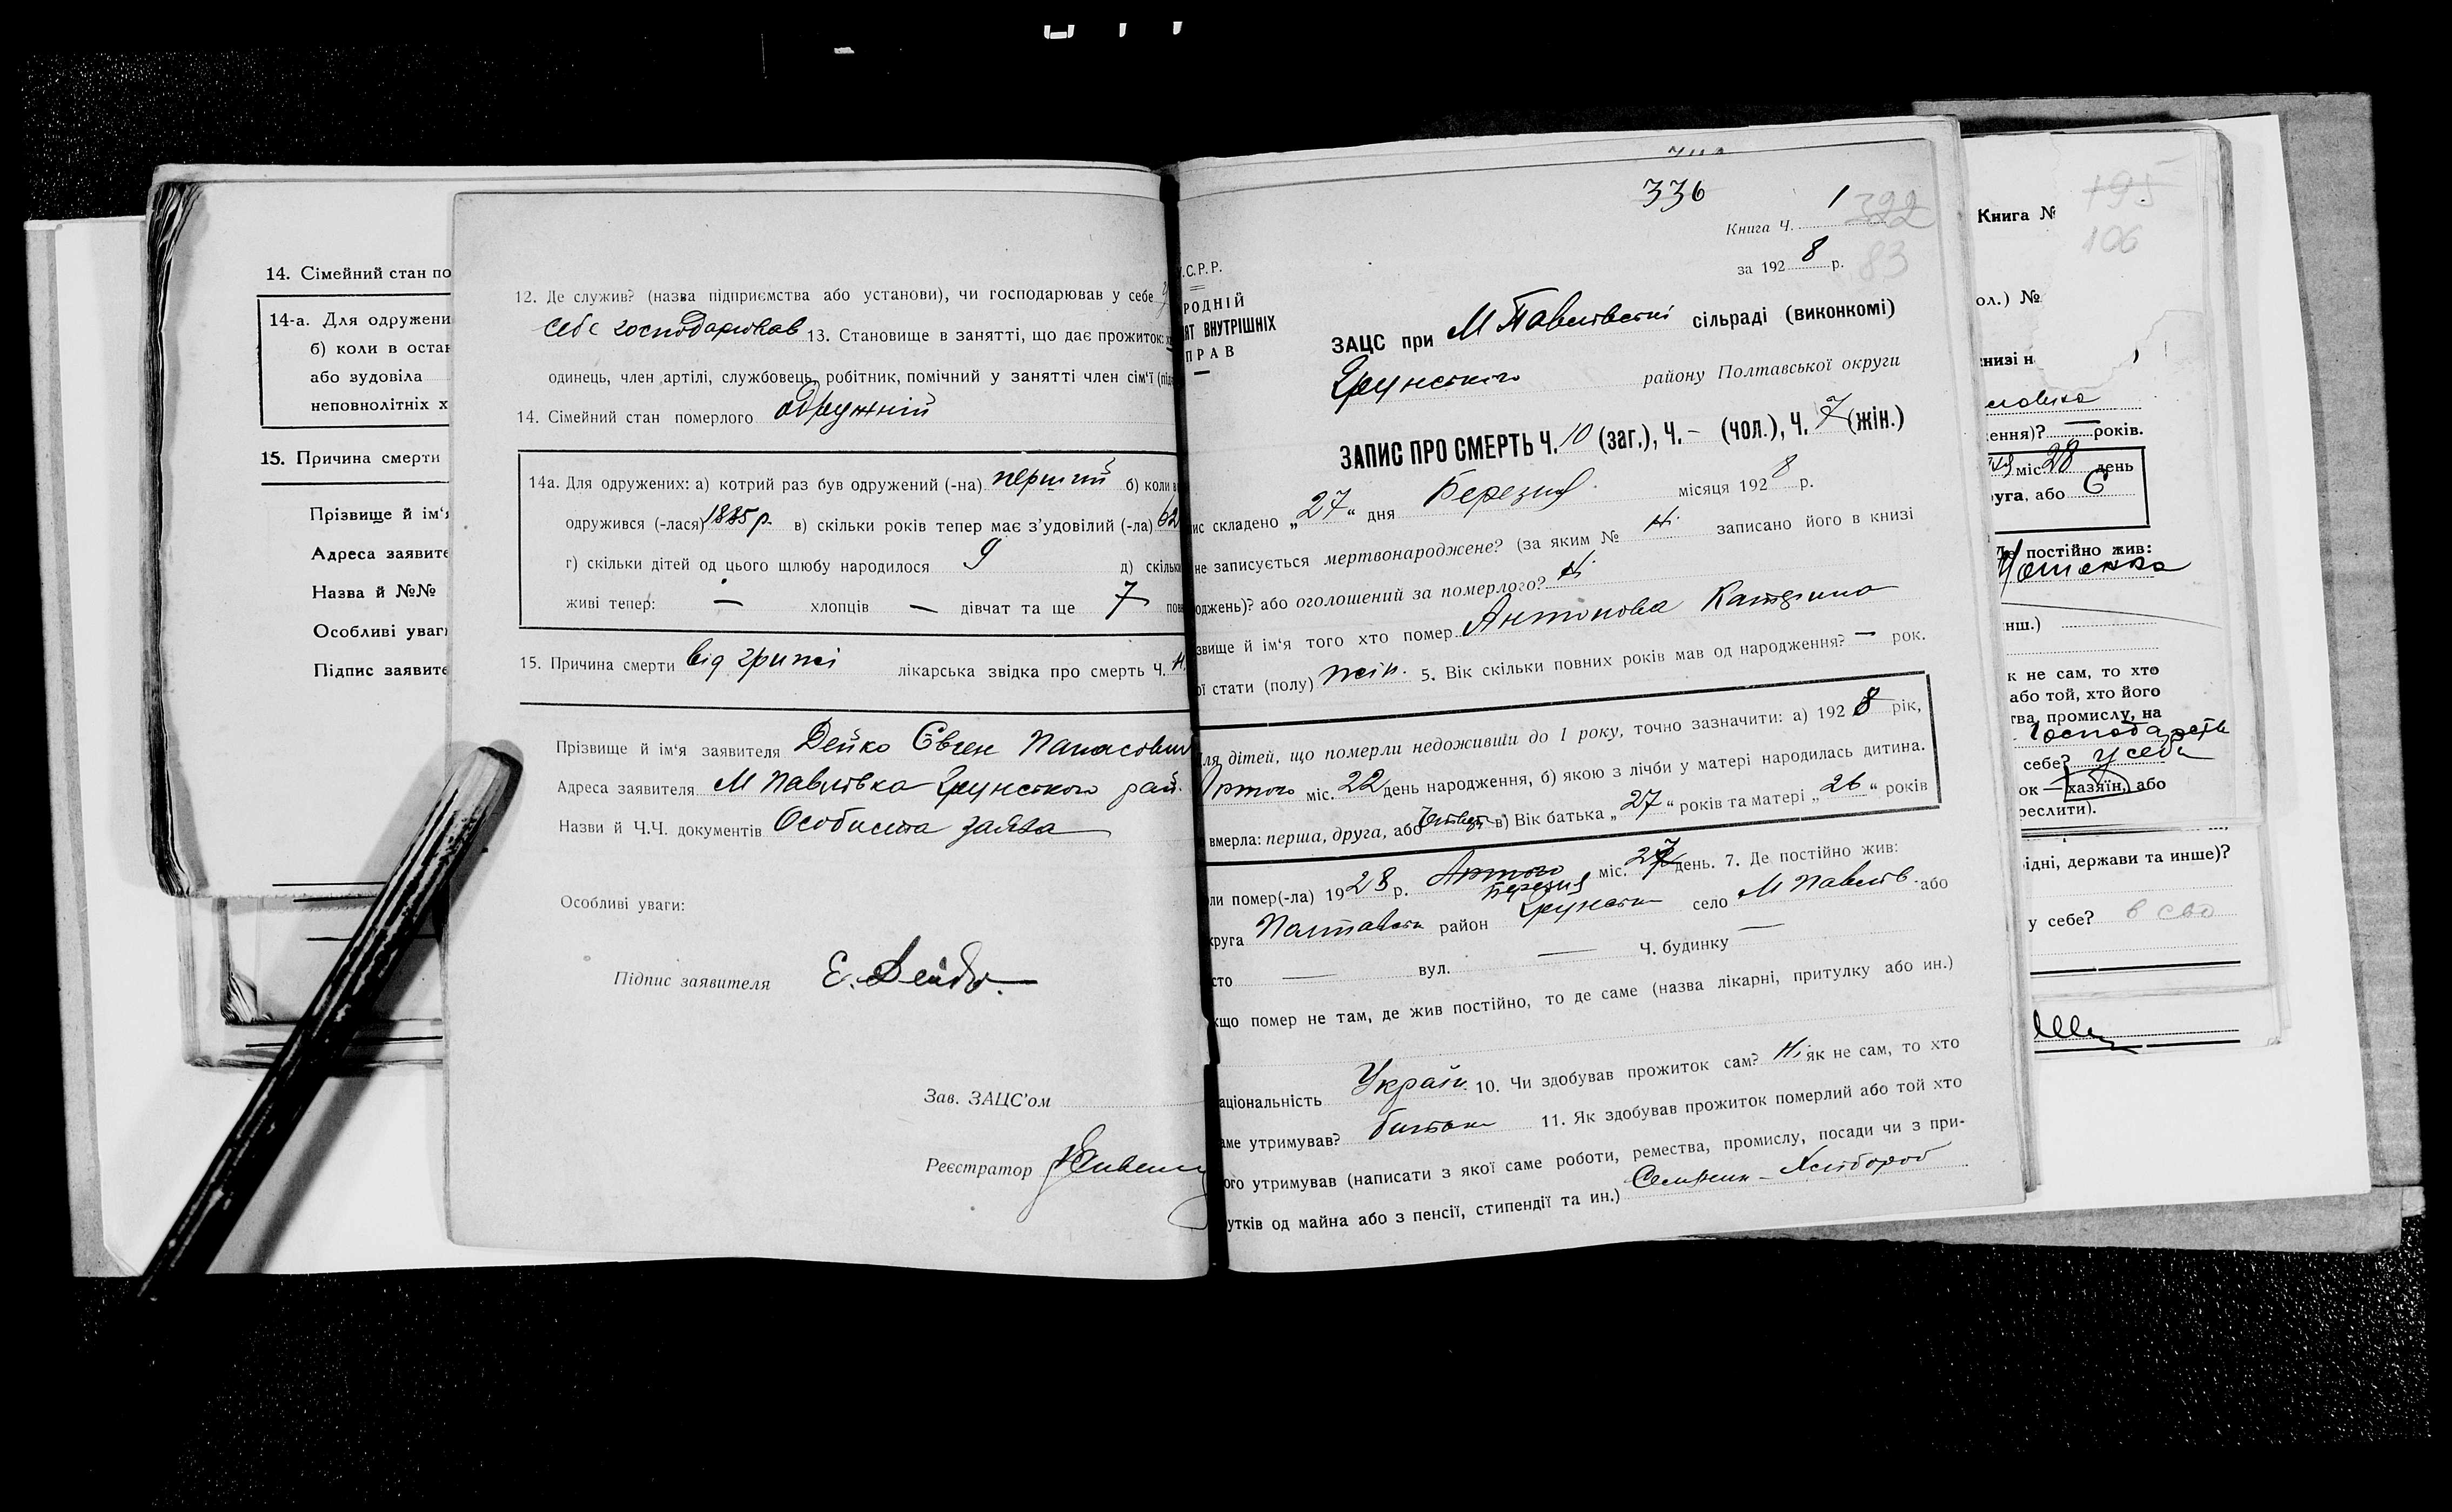 14. Сімейний стан по
14-а. Для одружени
б) коли в остан
або вудовіла
неповнолітніх х
15. Причина смерти
Прізвище й ім'я
Адреса заявите
Назва й №№
Особливі уваги
Підпис заявите
12. Де служив? (назва підприємства або установи), чи господарював у себе у
себе господарював 13. Становище в занятті, що дає прожиток:
одинець, член артілі, службовець, робітник, помічний у занятті член сім'ї (під
14. Сімейний стан померлого одружній
14а. Для одружених: а) котрий раз був одружений (-на) перший б) коли в
одружився (-лася) 1885 р. в) скільки років тепер має з'удовілий (-ла) 62
г) скільки дітей од цього щлюбу народилося 9 д) скільки
живі тепер: — хлопців — дівчат та ще 7 пов
15. Причина смерти від грижі лікарська звідка про смерть Ч. Н.
Прізвище й ім'я заявителя Дейко Євген Панасович
Адреса заявителя М Павлівка Грунського рай.
Назви й Ч.Ч. документів Особиста заява
Особливі уваги:
Підпис заявителя Є. Дейко.
Зав. ЗАЦС'ом
Реєстратор
336
Книга Ч. 1 322
за 192 8 р. 83
.С.Р.Р.
РОДНІЙ
ЯТ ВНУТРІШНІХ
ПРАВ
ЗАЦС при М Павлівській сільраді (виконкомі)
Грунського району Полтавської округи
ЗАПИС ПРО СМЕРТЬ Ч. 10 (заг.), Ч. – (чол.), Ч. 7 (жін.)
ис складено „27“ дня Березня місяця 192 8 р.
не записується мертвонароджене? (за яким № Ні записано його в книзі
оджень)? або оголошений за померлого? Ні
звище й ім'я того хто помер Антонова Катерина
ої стати (полу) жін. 5. Вік скільки повних років мав од народження? — рок.
ля дітей, що померли недоживши до 1 року, точно зазначити: а) 192 8 рік,
Лютого міс. 22 день народження, б) якою з лічби у матері народилась дитина.
вмерла: перша, друга, або в) Вік батька „27“ років та матері „26“ років
ли помер(-ла) 1928 р. Лютого Березня міс. 27 день. 7. Де постійно жив:
круга Полтавськ район Грунськ село М Павлів. або
сто — вул. — Ч. будинку —
кщо помер не там, де жив постійно, то де саме (назва лікарні, притулку або ин.)
аціональність Україн. 10. Чи здобував прожиток сам? Ні як не сам, то хто
аме утримував? батько 11. Як здобував прожиток померлий або той хто
ого утримував (написати з якої саме роботи, ремества, промислу, посади чи з при-
утків од майна або з пенсії, стипендії та ин.) Селянин – Хлібороб
195
Книга №
106
ол.) №
книзі н
ення)? — років.
міс 28 день
руга, або 6
Де постійно жив:
инш.)
к не сам, то хто
або той, хто його
тва, промислу, на
Господарств
себе? у себе
ок — хазяїн, або
реслити).
ідні, держави та инше)?
у себе? в сво